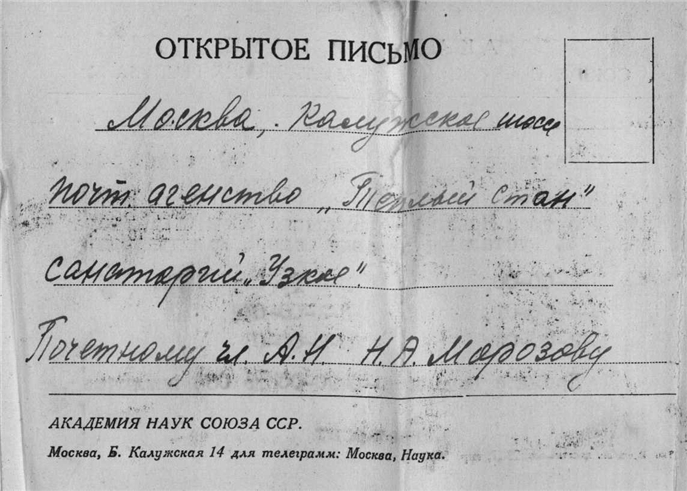 ОТКРЫТОЕ ПИСЬМО
Москва, Калужское шоссе
почт. агенство „Теплый Стан"
санаторий „Узкое".
Почетному чл. А.Н. Н.А. Морозову
АКАДЕМИЯ НАУК СОЮЗА ССР.
Москва, Б. Калужская 14 для телеграмм: Москва, Наука.